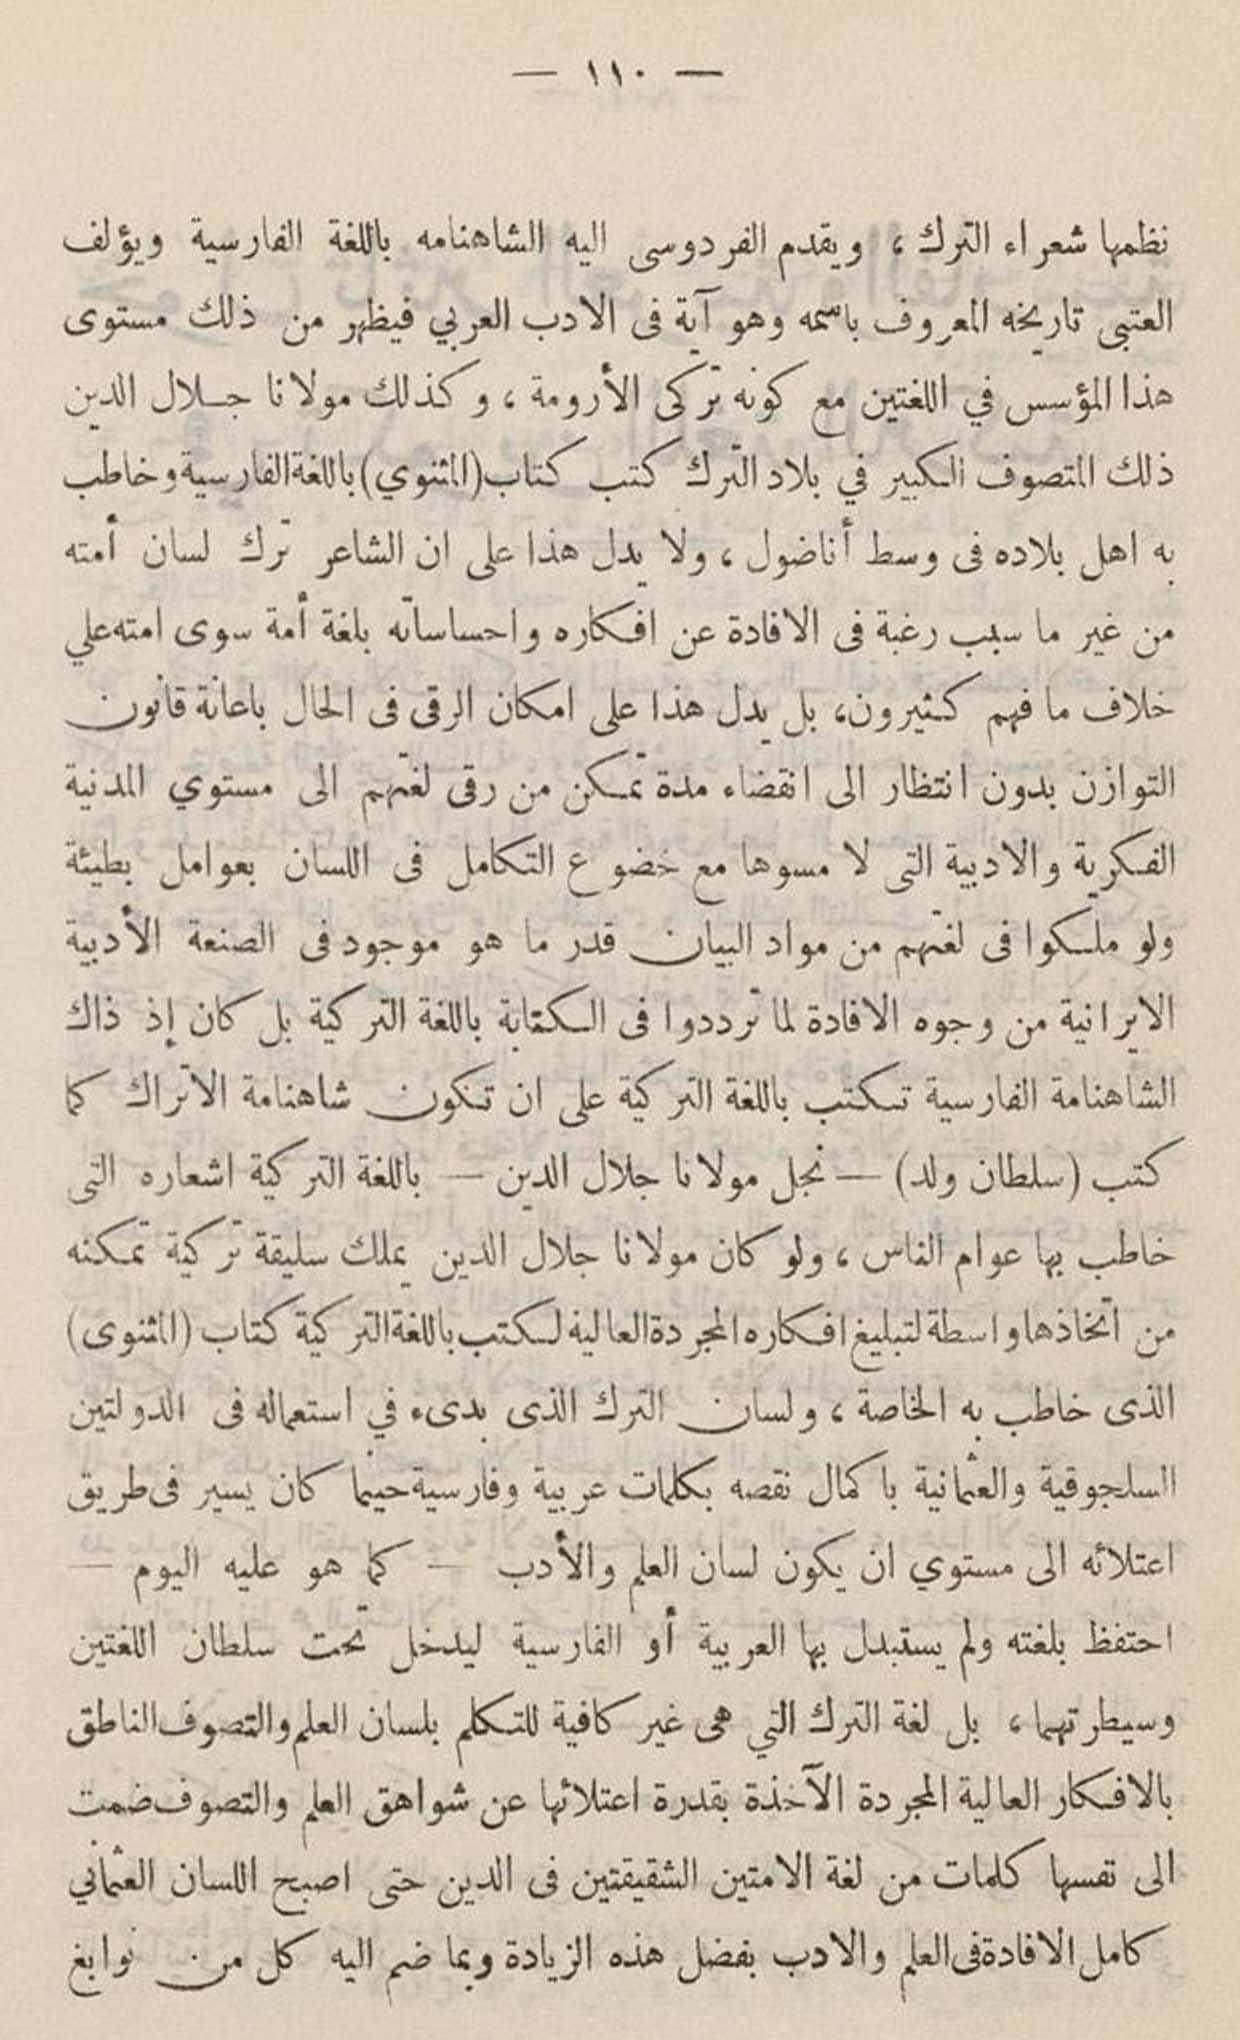 — ١١٠ —
نظمها شعراء الترك ، ويقدم الفردوسى اليه الشاهنامه باللغة الفارسية ويؤلف
العتبى تاريخه المعروف باسمه وهو آية فى الادب العربي فيظهر من ذلك مستوى
هذا المؤسس في اللغتين مع كونه تركى الأرومة ، وكذلك مولانا جلال الدين
ذلك المتصوف الكبير في بلاد الترك كتب كتاب (المثنوي) باللغة الفارسية وخاطب
به اهل بلاده فى وسط أناضول ، ولا يدل هذا على ان الشاعر ترك لسان أمته
من غير ما سبب رغبة فى الافادة عن افكاره واحساساته بلغة أمة سوى امته علي
خلاف ما فهم كثيرون، بل يدل هذا على امكان الرقى فى الحال باعانة قانون
التوازن بدون انتظار الى انقضاء مدة تمكن من رقى لغتهم الى مستوي المدنية
الفكرية والادبية التى لا مسوها مع خضوع التكامل فى اللسان بعوامل بطيئة
ولو ملكوا فى لغتهم من مواد البيان قدر ما هو موجود فى الصنعة الأدبية
الايرانية من وجوه الافادة لما ترددوا فى الكتابة باللغة التركية بل كان إذ ذاك
الشاهنامة الفارسية تكتب باللغة التركية على ان تكون شاهنامة الاتراك كما
كتب (سلطان ولد) — نجل مولانا جلال الدين — باللغة التركية اشعاره التى
خاطب بها عوام الناس ، ولو كان مولانا جلال الدين يملك سليقة تركية تمكنه
من اتخاذها واسطة لتبليغ افكاره المجردة العالية لكتب باللغة التركية كتاب (المثنوى)
الذى خاطب به الخاصة ، ولسان الترك الذى بدىء في استعماله فى الدولتين
السلجوقية والعثمانية باكمال نقصه بكلمات عربية وفارسية حينما كان يسير فى طريق
اعتلائه الى مستوي ان يكون لسان العلم والأدب — كما هو عليه اليوم —
احتفظ بلغته ولم يستبدل بها العربية أو الفارسية ليدخل تحت سلطان اللغتين
وسيطرتهما ، بل لغة الترك التي هى غير كافية للتكلم بلسان العلم والتصوف الناطق
بالافكار العالية المجردة الآخذة بقدرة اعتلائها عن شواهق العلم والتصوف ضمت
الى نفسها كلمات من لغة الامتين الشقيقتين فى الدين حتى اصبح اللسان العثماني
كامل الافادة فى العلم والادب بفضل هذه الزيادة وبما ضم اليه كل من نوابغ